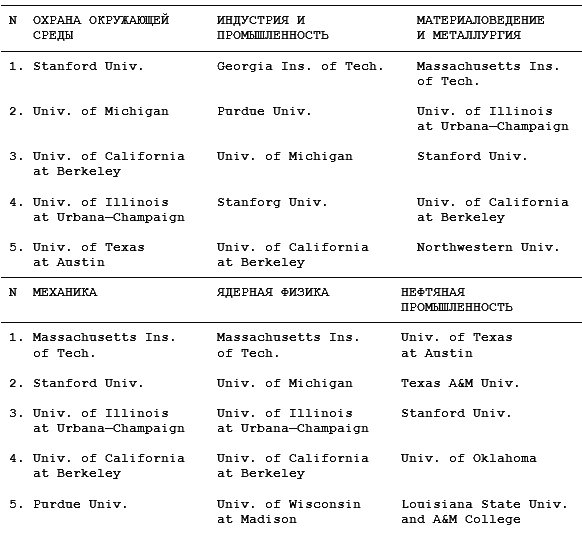 N ОХРАНА ОКРУЖАЮЩЕЙ ИНДУСТРИЯ И МАТЕРИАЛОВЕДЕНИЕ
СРЕДЫ ПРОМЫШЛЕННОСТЬ И МЕТАЛЛУРГИЯ
1. Stanford Univ. Georgia Ins. of Tech. Massachusetts Ins.
of Tech.
2. Univ. of Michigan Purdue Univ. Univ. of Illinois
at Urbana—Champaign
3. Univ. of California Univ. of Michigan Stanford Univ.
at Berkeley
4. Univ. of Illinois Stanforg Univ. Univ. of California
at Urbana—Champaign at Berkeley
5. Univ. of Texas Univ. of California Northwestern Univ.
at Austin at Berkeley
N МЕХАНИКА ЯДЕРНАЯ ФИЗИКА НЕФТЯНАЯ
ПРОМЫШЛЕННОСТЬ
1. Massachusetts Ins. Massachusetts Ins. Univ. of Texas
of Tech. of Tech. at Austin
2. Stanford Univ. Univ. of Michigan Texas A&M Univ.
3. Univ. of Illinois Univ. of Illinois Stanford Univ.
at Urbana—Champaign at Urbana—Champaign
4. Univ. of California Univ. of California Univ. of Oklahoma
at Berkeley at Berkeley
5. Purdue Univ. Univ. of Wisconsin Louisiana State Univ.
at Madison and A&M College